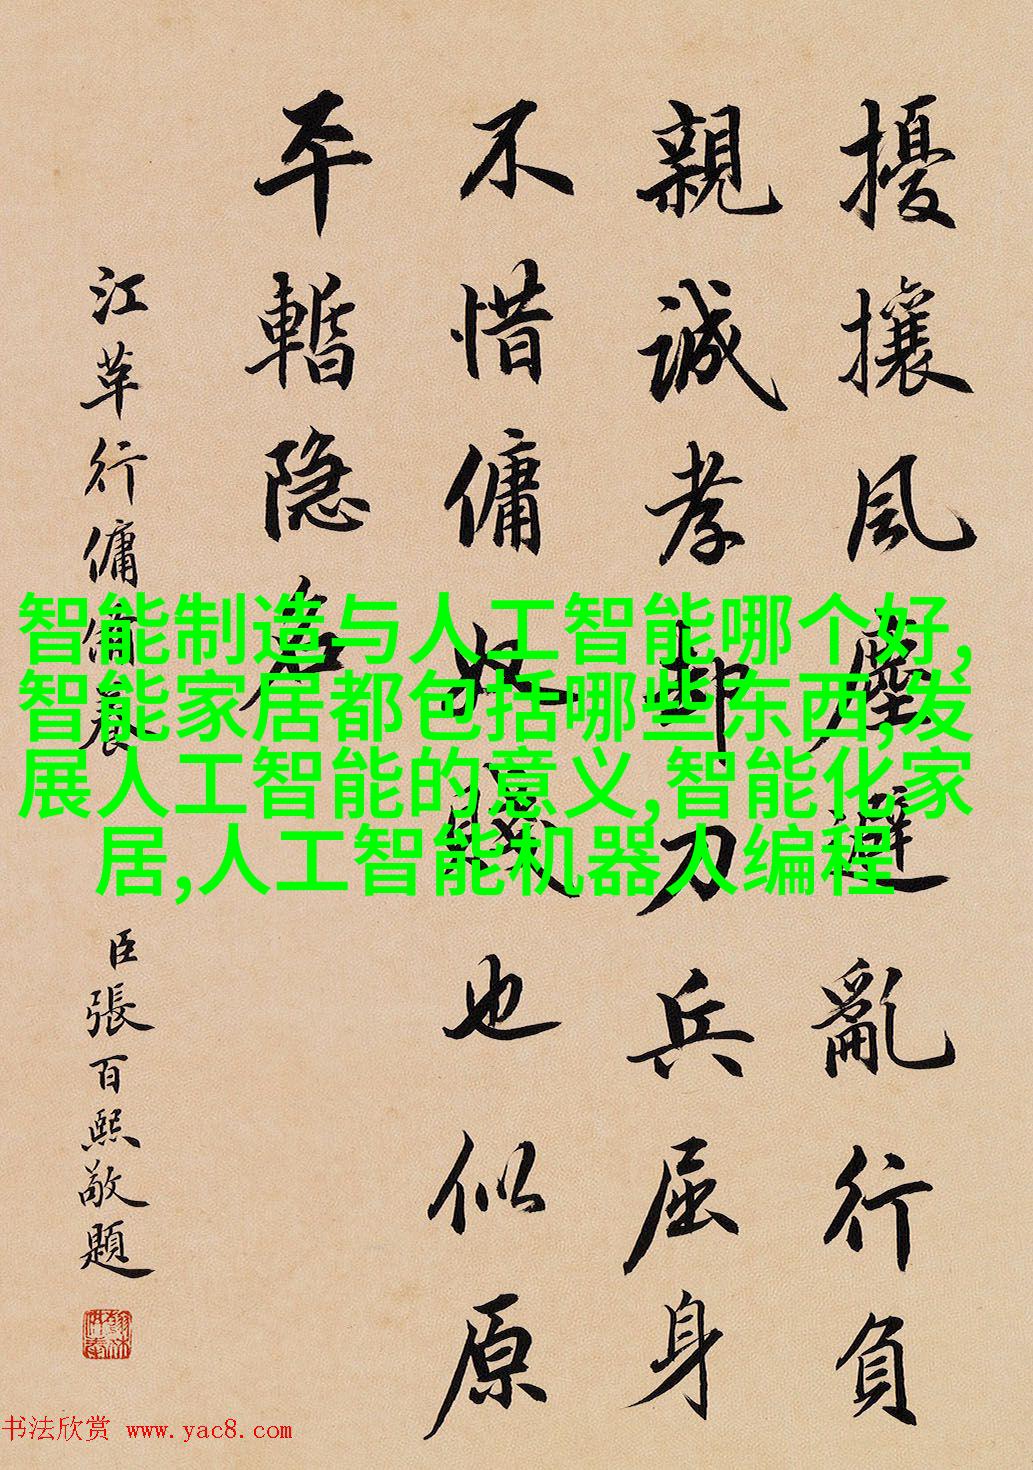 擾攘風塵避亂行負
親誠孝却刀兵屈身
不惜傭奴賤也似原
平暫隐名
江革行傭養
臣張百熙敬題
智能制造与人工智能哪个好,
智能家居都包括哪些东西,发
展人工智能的意义,智能化家
居,人工智能机器人编程
书法欣赏 www.yac8.com